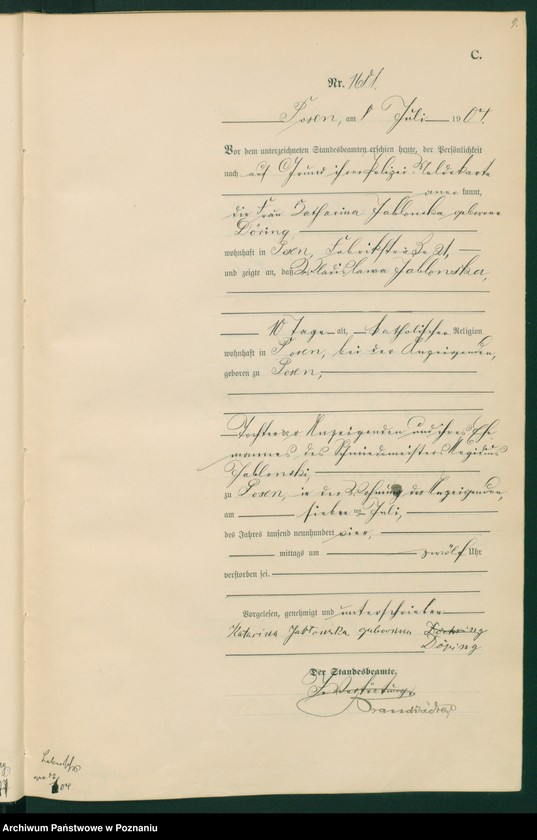 9.
C.
Nr. 1681.
Posen, am 8 Juli 1904.
Vor dem unterzeichneten Standesbeamten erschien heute, der Persönlichkeit
nach auf Grund ihrer Polizei Meldekarte
aner kannt,
die Frau Katharina Jablonska geborene
Döring,
wohnhaft in Posen, Fabrikstraße 21,
und zeigte an, daß Wladislawa Jablonska,
10 Tage alt, katholischer Religion
wohnhaft in Posen, bei der Anzeigenden,
geboren zu Posen,
Tochter der Anzeigenden und ihres Ehe
mannes des Schmiedemeisters Aegidius
Jablonski,
zu Posen, in der Wohnung der Anzeigenden
am sieben ten Juli,
des Jahres tausend neunhundert vier,
mittags um zwölf Uhr
verstorben sei.
Vorgelesen, genehmigt und unterschrieben
Katarina Jabłonska geborenna
Döring
Der Standesbeamte.
In Vertretung.
04
Archiwum Państwowe w Poznaniu